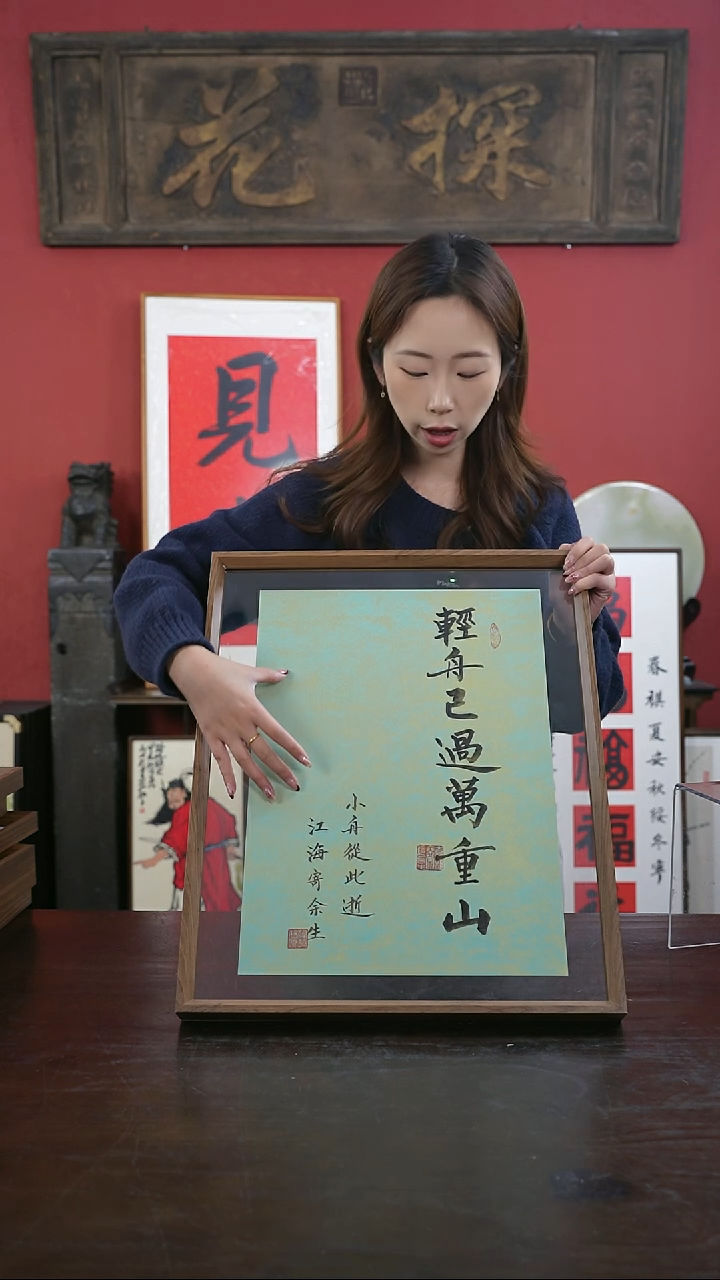 探花
見
輕舟已過萬重山
小舟從此逝
江海寄余生
春祺夏安秋綏冬寧
福